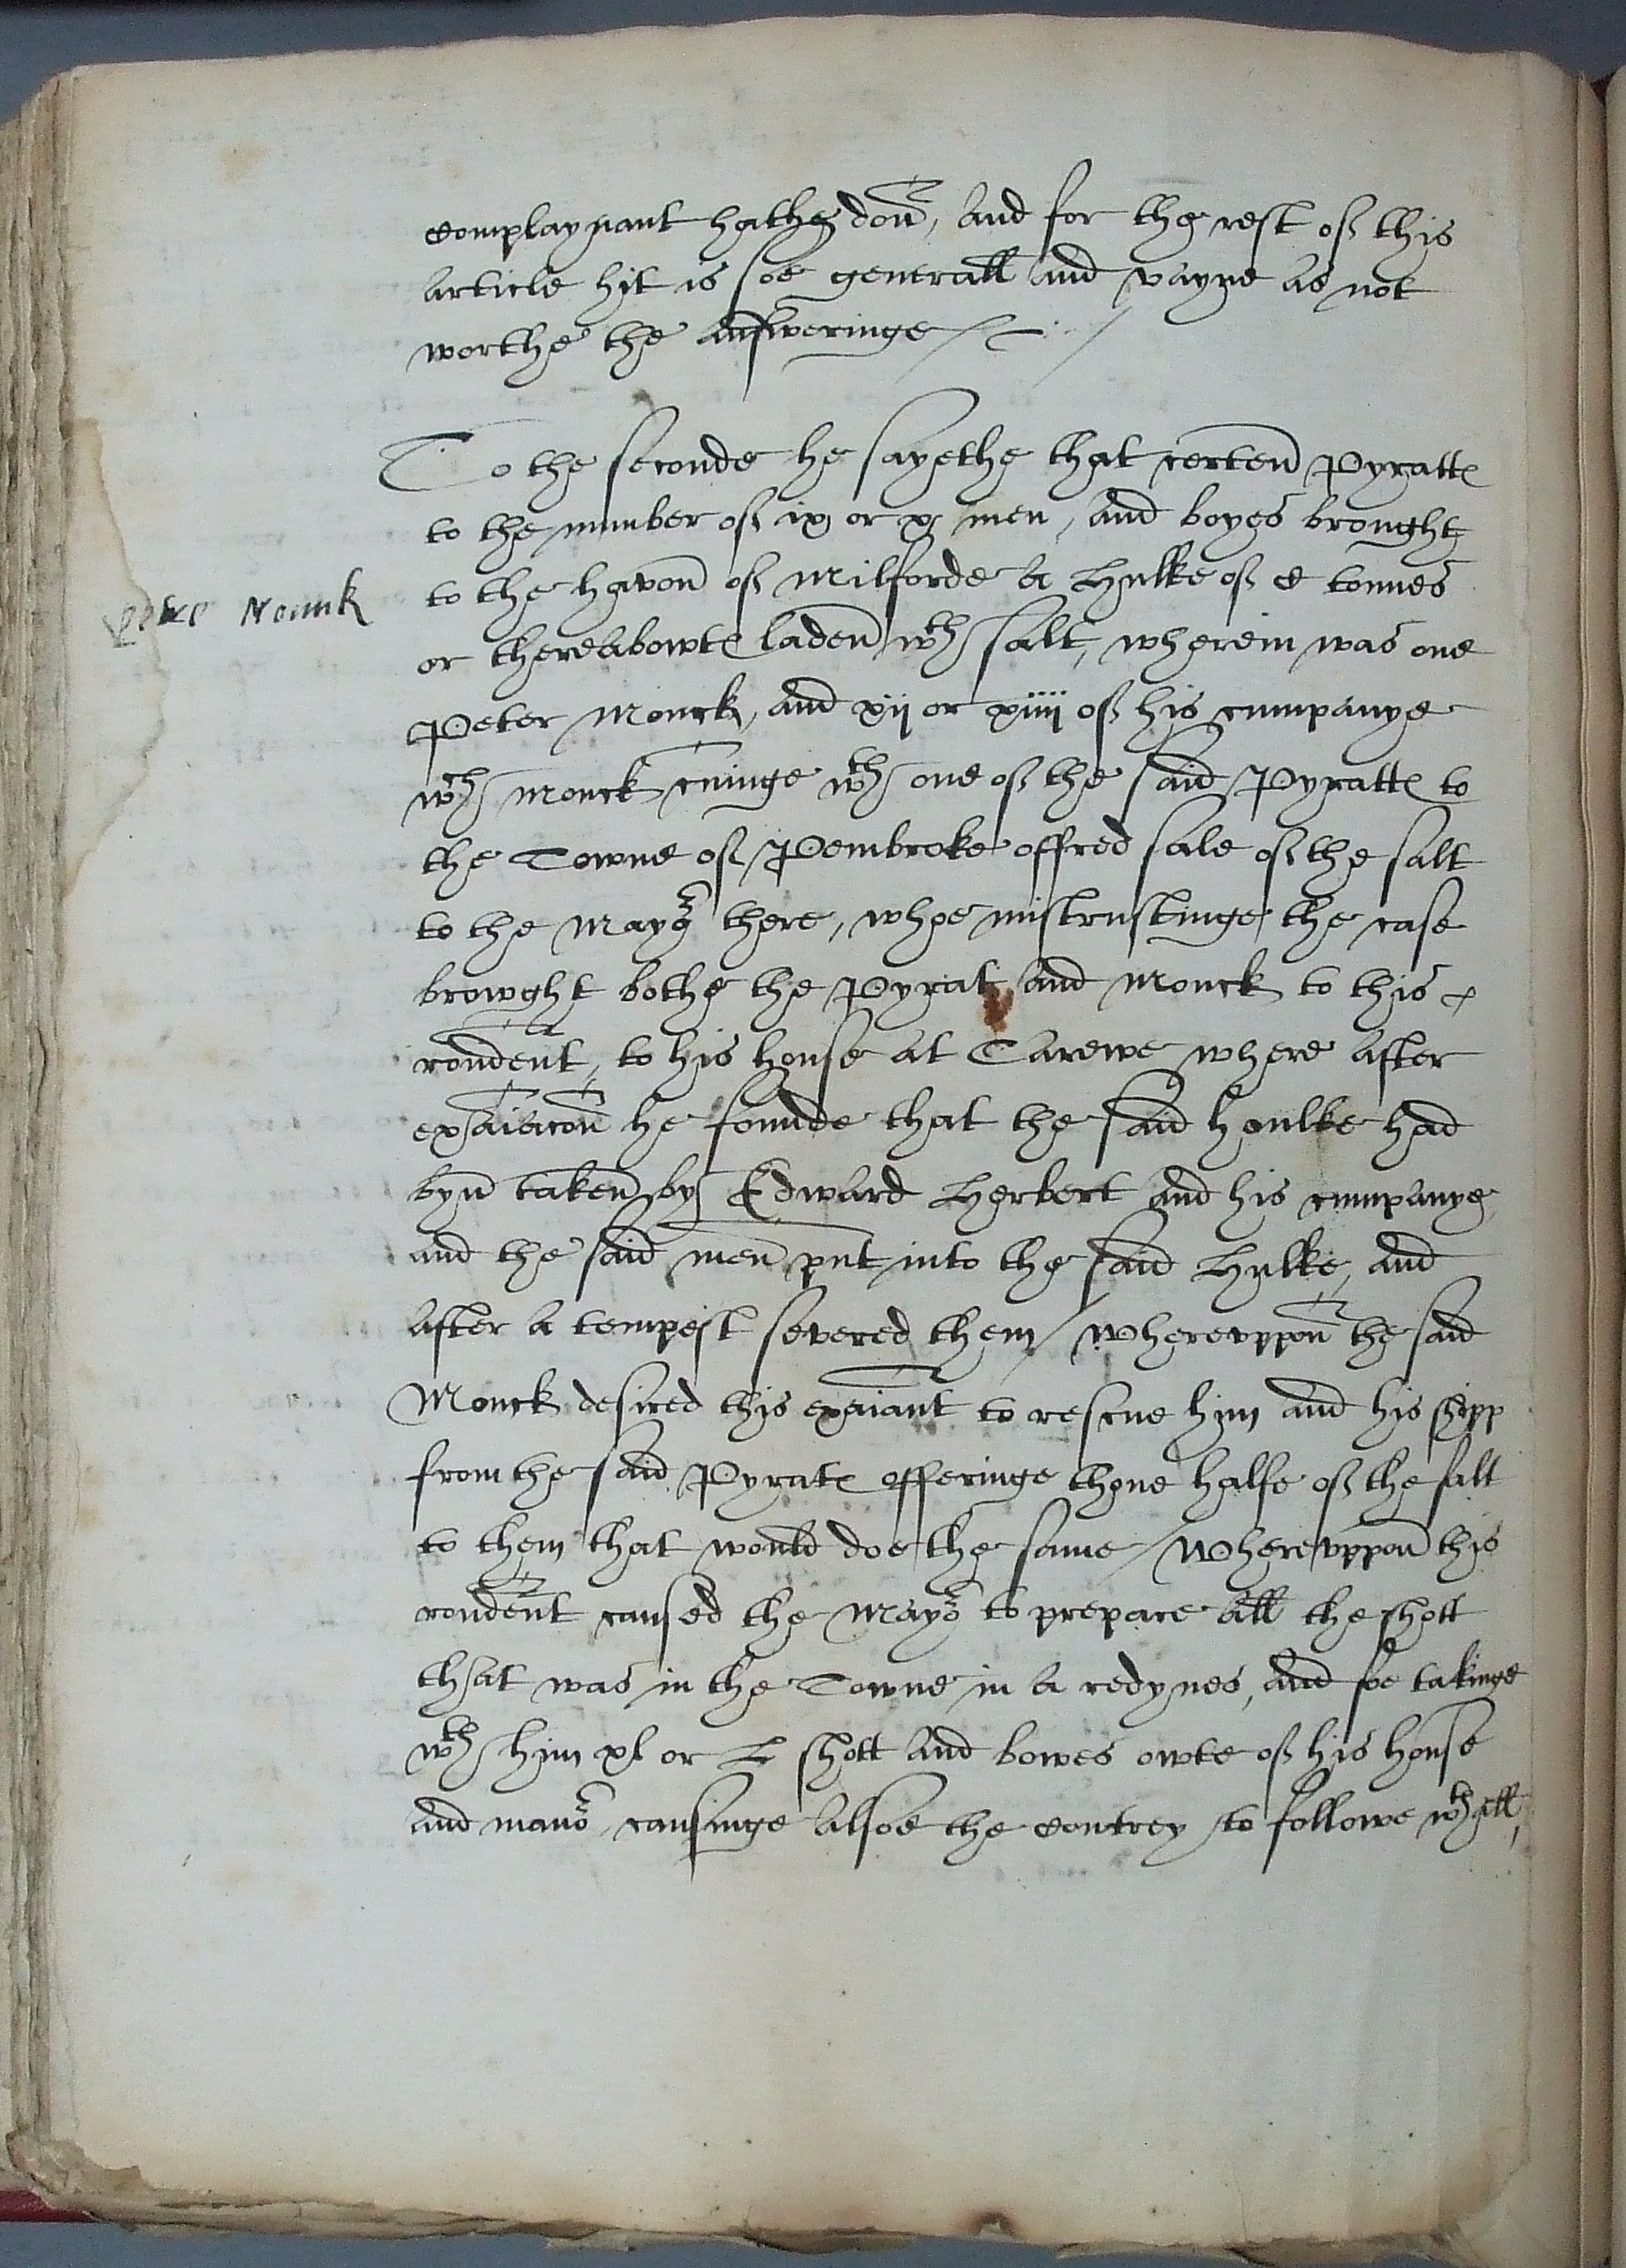 complaynant hathe don, and for the rest of this
article hit is soe generall and vayne as not
worthe the answeringe
To the seconde he sayethe that certen Pyratts
to the number of ix or x men, and boyes brought
to the haven of Milforde a Hulke of C tonnes
or thereabowts laden wth salt, wherein was one
Monck
Peter Monck, and xij or xiiij of his cumpanye
wch Monck cuinge wth one of the said Pyratts to
the Towne of Pembroke offred sale of the salt
to the Mayor there, whoe mistrustinge the case
browght bothe the Pyrat and Monck to this
rondent, to his house at Carewe where after
exaiacon he founde that the said houlke had
byn taken by Edward Herbert and his cumpanye
and the said men put into the said Hulke, and
after a tempest severed them / Wherevppon the said
Monck desired this exaiant to rescue him and his shipp
from the said Pyrats offeringe thone halfe of the salt
to them that would doe the same / Wherevppon this
rondent caused the Mayor to prepare all the shott
that was in the Towne in a redynes, and soe takinge
wth him xl or L shott and bowes owte of his house
and manor, causinge alsoe the contrey to followe wth all,